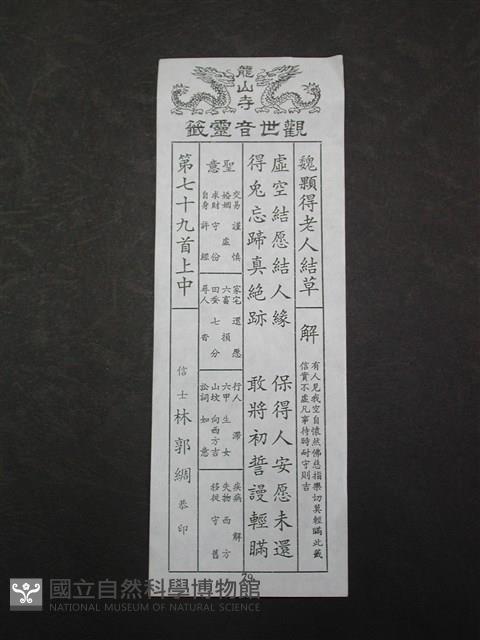 龍山寺
觀世音靈籤
魏顆得老人結草
解
有人見我空自懷然佛慈指樂切莫輕瞞此籤
信實不虛凡事待時耐守則吉
虛空結愿結人緣 保得人安愿未還
得兔忘蹄真絕跡 敢將初誓謾輕瞞
聖意
交易 謹慎
婚姻 虛
求財 守份
自身 許經
家宅 還愿
六畜 損
田蚕 七分
尋人 杳
行人 滯
六甲 生女
山坟 向西方吉
訟詞 如意
疾病 解
失物 西方
移徙 守舊
第七十九首上中
信士 林郭綢 恭印
79
國立自然科學博物館
NATIONAL MUSEUM OF NATURAL SCIENCE